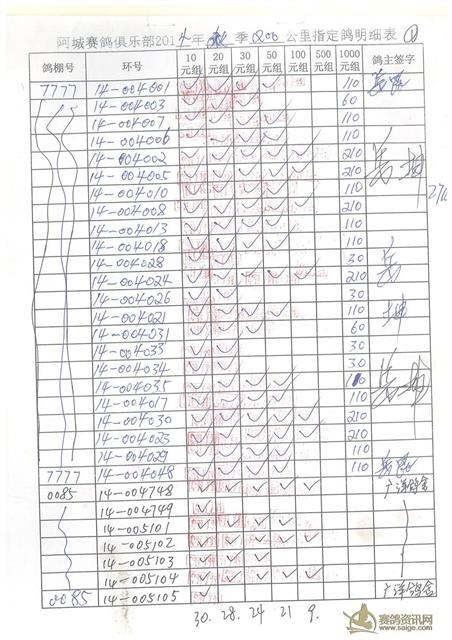 阿城赛鸽俱乐部2014年秋季200公里指定鸽明细表 ①
鸽棚号 环号 10元组 20元组 30元组 50元组 100元组 500元组 1000元组 鸽主签字
7777 14-004001 ✓ ✓ ✓ ✓ 110
14-004003 ✓ ✓ ✓ 60
14-004007 ✓ ✓ ✓ ✓ 110
14-004006 ✓ ✓ ✓ ✓ 110
14-004002 ✓ ✓ ✓ ✓ ✓ 210
14-004005 ✓ ✓ ✓ ✓ ✓ 210
14-004010 ✓ ✓ ✓ ✓ 110
14-004008 ✓ ✓ ✓ ✓ ✓ 210
14-004013 ✓ ✓ ✓ ✓ 110
14-004018 ✓ ✓ ✓ ✓ 110
14-004028 ✓ ✓ 30
14-004024 ✓ ✓ ✓ ✓ ✓ 210
14-004026 ✓ ✓ 30
14-004021 ✓ ✓ ✓ ✓ 110
14-004031 ✓ ✓ ✓ 60
14-004033 ✓ ✓ 30
14-004034 ✓ ✓ 30
14-004035 ✓ ✓ ✓ ✓ 110
14-004017 ✓ ✓ ✓ ✓ 110
14-004030 ✓ ✓ ✓ ✓ ✓ 210
14-004023 ✓ ✓ ✓ ✓ ✓ 210
14-004029 ✓ ✓ ✓ ✓ 110
7777 14-004048 ✓ ✓ ✓ ✓ 110
0085 14-004748 ✓ ✓ ✓ ✓ ✓ 广洋鸽舍
14-004749 ✓
14-005101 ✓ ✓ ✓ ✓
14-005102 ✓ ✓ ✓ ✓ ✓
14-005103 ✓ ✓ ✓
14-005104 ✓ ✓ ✓ ✓ ✓
0085 14-005105 ✓ 广洋鸽舍
30. 28. 24 21 9.
赛鸽资讯网
www.saige.com